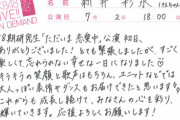 KB48
IVE!!
N DEMAND
新井彩永
公演日 7月2日 18:00
18期研究生「ただいま恋愛中」公演 初日、
ありがとうございました! とても緊張しましたが、すごく
楽しくて忘れられない幸せな一日になりました
キラキラの笑顔と歌声はもちろん、ユニットなどでは
大人っぽい表情やダンスもお届けできたと思います
これからも成長し続けて、みなさんの心を彩り、
輝いていきます。応援よろしくお願いします!